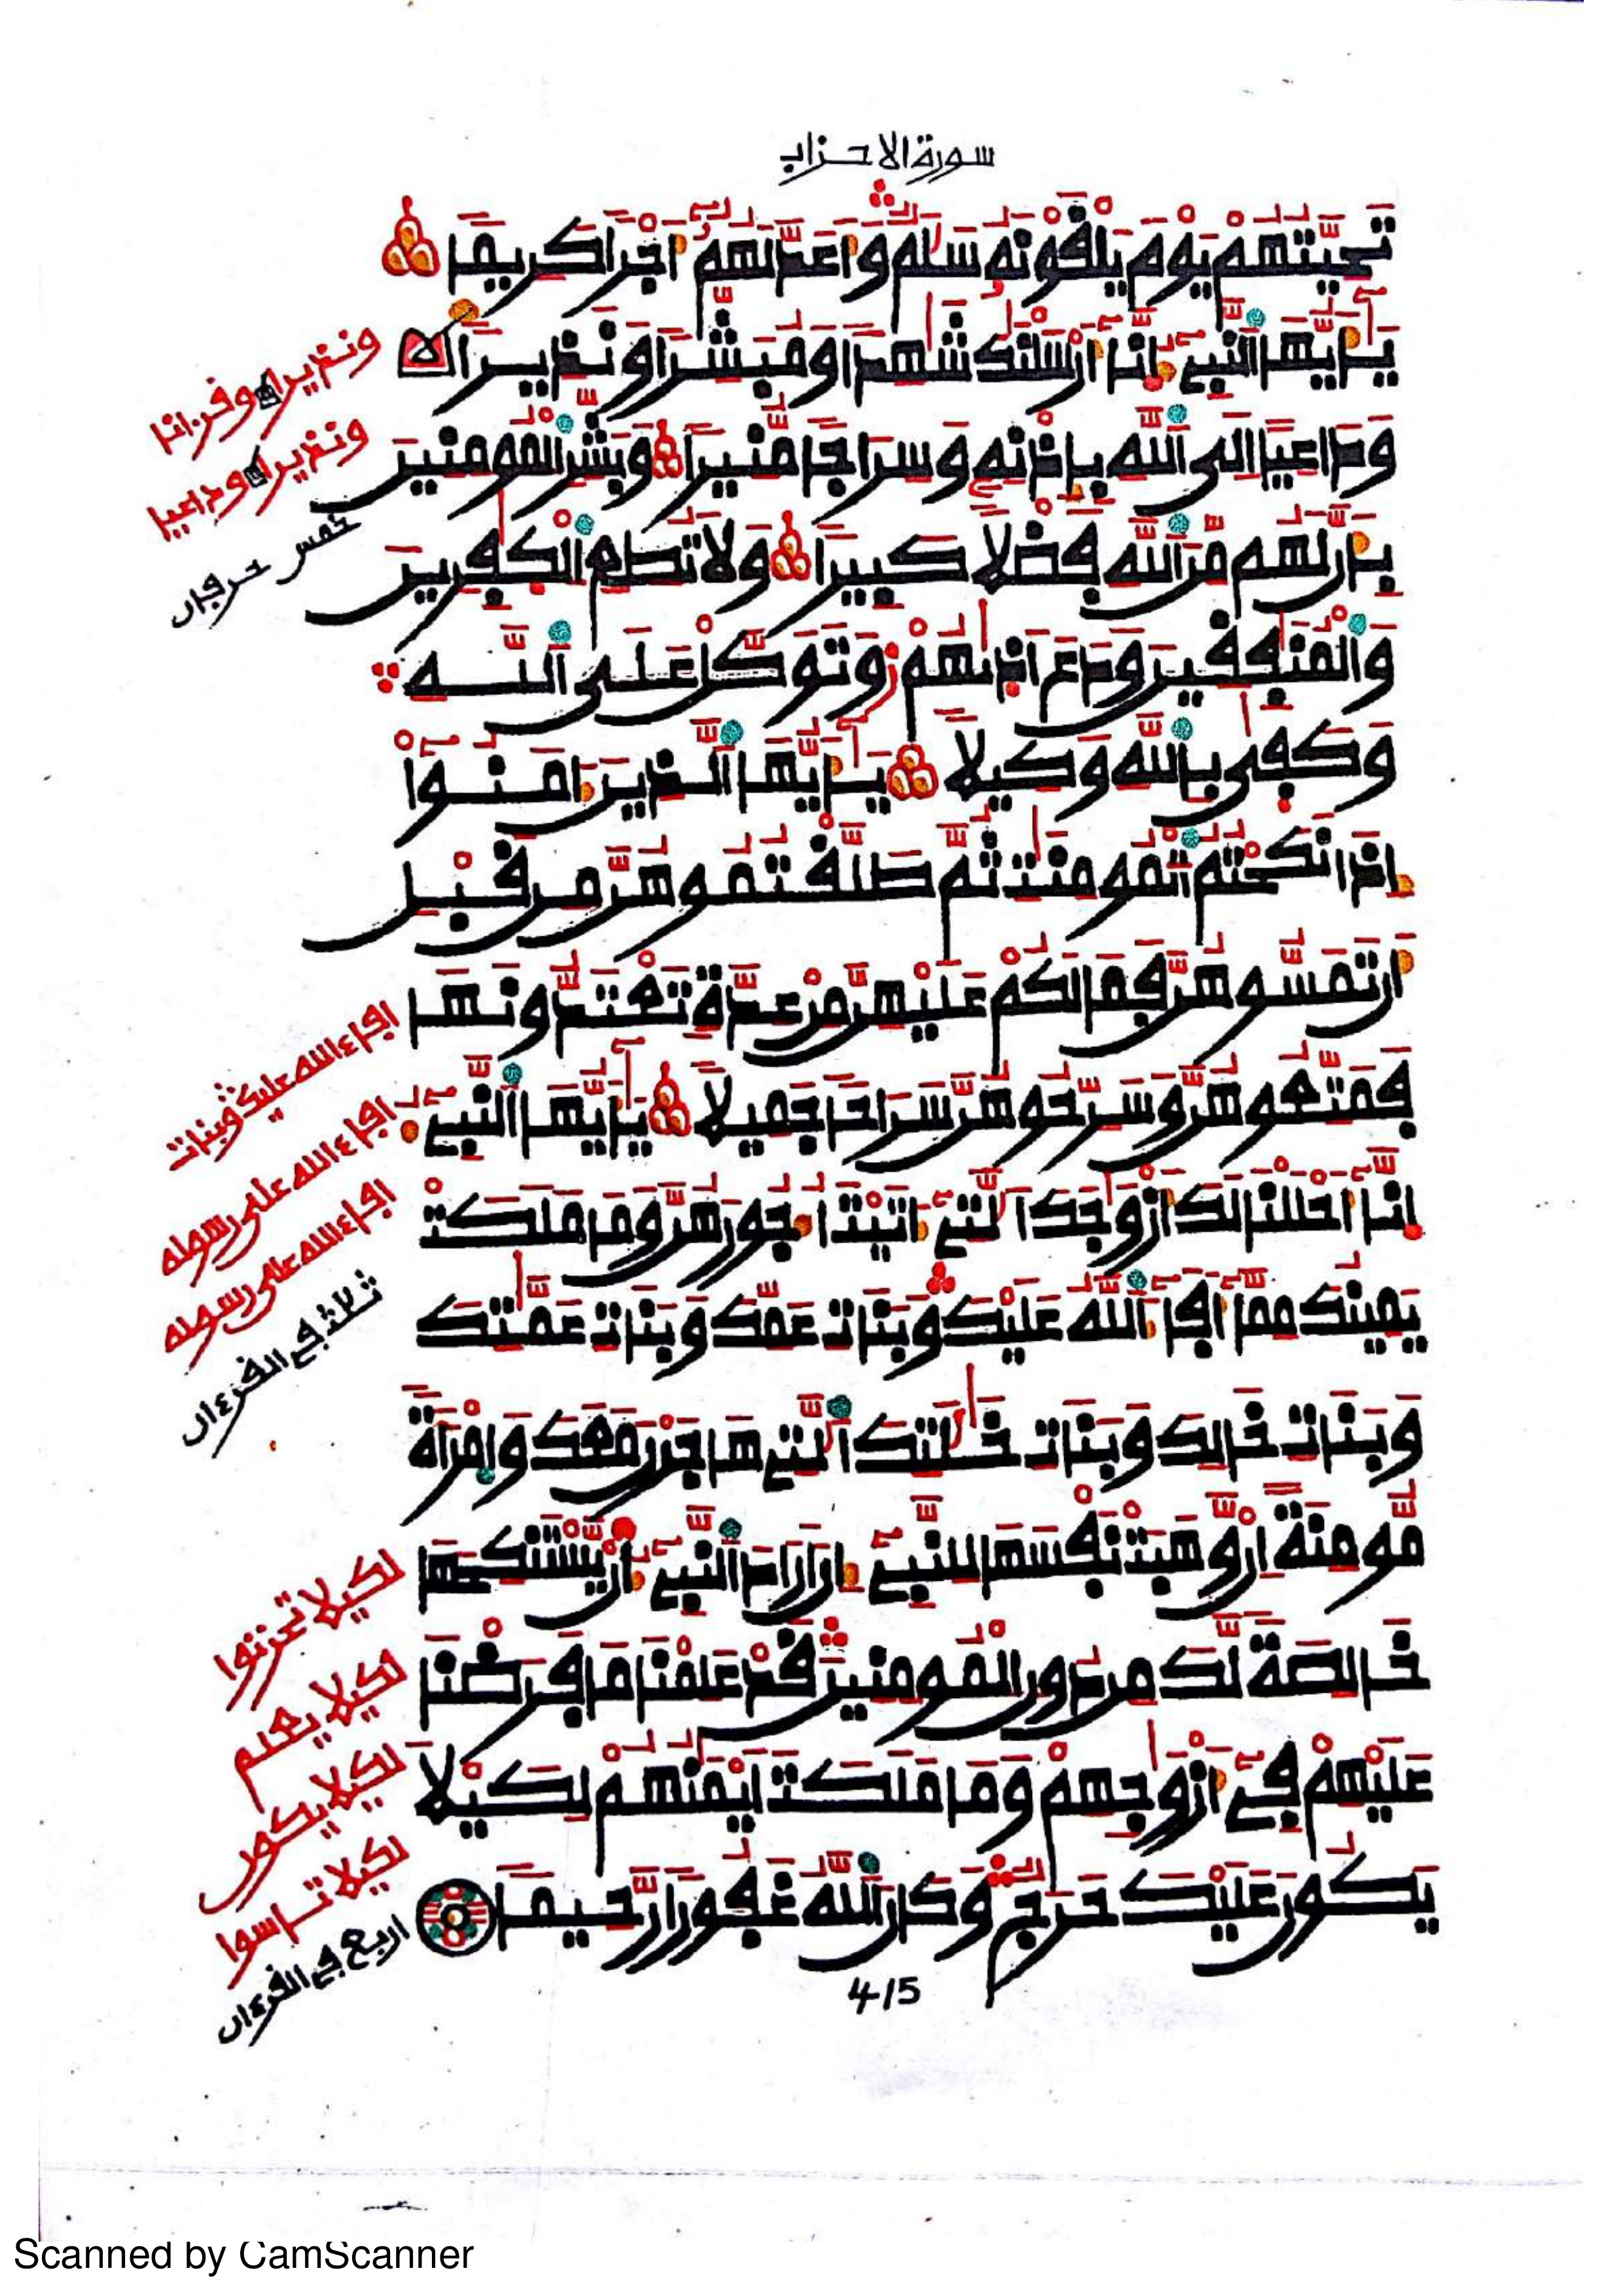 سورة الاحزاب
تَحِيَّتُهُمْ يَوْمَ يَلْقَوْنَهُ سَلَٰمٌ وَأَعَدَّ لَهُمُ أَجْرًا كَرِيمًا
يَٰأَيُّهَا النَّبِيءُ إِنَّا أَرْسَلْنَٰكَ شَٰهِدًا وَمُبَشِّرًا وَنَذِيرًا
وَدَاعِيًا إِلَى اللَّهِ بِإِذْنِهِ وَسِرَاجًا مُّنِيرًا وَبَشِّرِ الْمُومِنِينَ
بِأَنَّ لَهُم مِّنَ اللَّهِ فَضْلًا كَبِيرًا وَلَا تُطِعِ الْكَٰفِرِينَ
وَالْمُنَٰفِقِينَ وَدَعَ أَذَىٰهُمْ وَتَوَكَّلْ عَلَى اللَّهِ
وَكَفَىٰ بِاللَّهِ وَكِيلًا يَٰأَيُّهَا الَّذِينَ ءَامَنُوٓاْ
إِذَا نَكَحْتُمُ الْمُومِنَٰتِ ثُمَّ طَلَّقْتُمُوهُنَّ مِن قَبْلِ
أَن تَمَسُّوهُنَّ فَمَا لَكُمْ عَلَيْهِنَّ مِنْ عِدَّةٍ تَعْتَدُّونَهَا
فَمَتِّعُوهُنَّ وَسَرِّحُوهُنَّ سَرَاحًا جَمِيلًا يَٰأَيُّهَا النَّبِيءُ
إِنَّا أَحْلَلْنَا لَكَ أَزْوَٰجَكَ الَّتِي ءَاتَيْتَ أُجُورَهُنَّ وَمَا مَلَكَتْ
يَمِينُكَ مِمَّا أَفَاءَ اللَّهُ عَلَيْكَ وَبَنَاتِ عَمِّكَ وَبَنَاتِ عَمَّٰتِكَ
وَبَنَاتِ خَالِكَ وَبَنَاتِ خَٰلَٰتِكَ الَّتِي هَاجَرْنَ مَعَكَ وَامْرَأَةً
مُّومِنَةً إِنْ وَّهَبَتْ نَفْسَهَا لِلنَّبِيءِ انَ ارَادَ النَّبِيءُ أَنْ يَّسْتَنكِحَهَا
خَالِصَةً لَّكَ مِن دُونِ الْمُومِنِينَ قَدْ عَلِمْنَا مَا فَرَضْنَا
عَلَيْهِمْ فِي أَزْوَٰجِهِمْ وَمَا مَلَكَتَ ايْمَٰنُهُمْ لِكَيْلَا
يَكُونَ عَلَيْكَ حَرَجٌ وَكَانَ اللَّهُ غَفُورًا رَّحِيمًا
ونذيرا وقرءانا
ونذيرا وداعيا
خمس حرفان
افاء الله عليك وبنات
افاء الله على رسوله
افاء الله على رسوله
ثلاث في القرءان
لكيلا تحزنوا
لكيلا يعلم
لكيلا يكون
لكيلا تاسوا
اربع في القرءان
415
Scanned by CamScanner